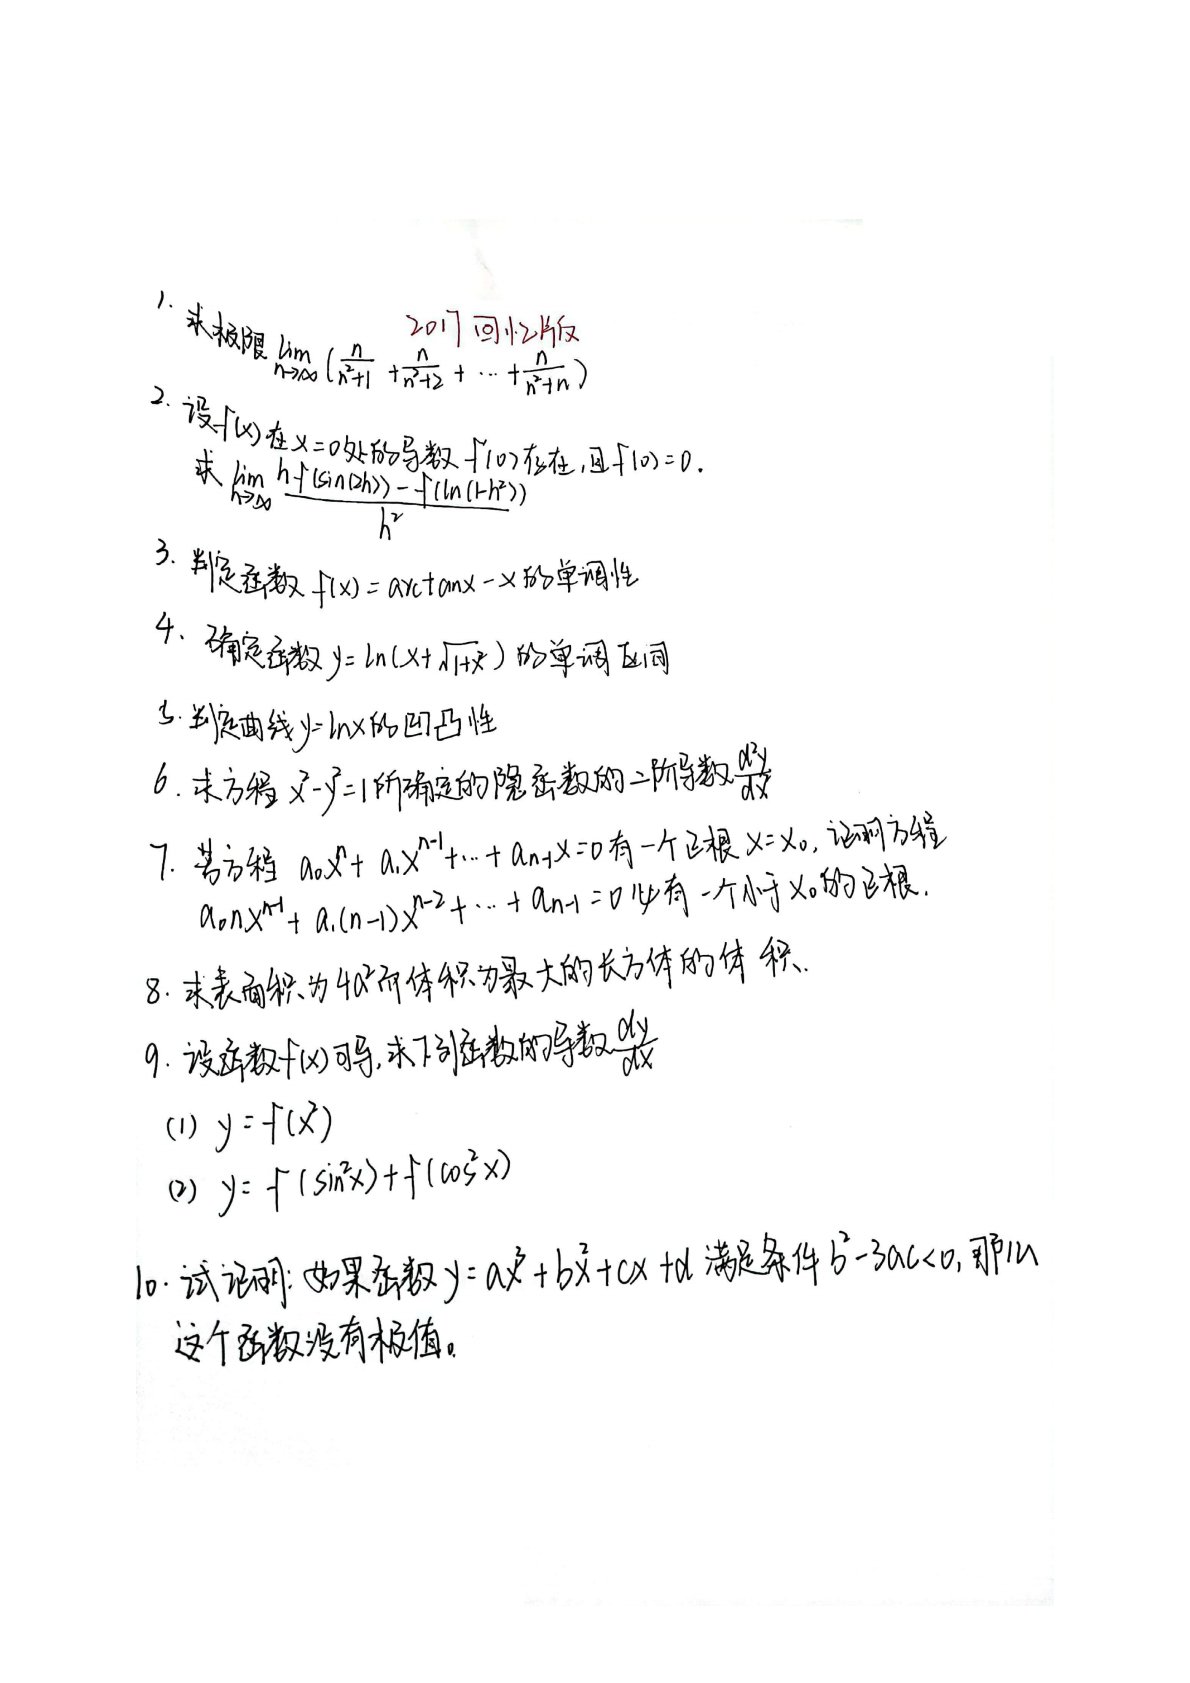 2017回忆版
1. 求极限 lim n→∞ (n/(n²+1) + n/(n²+2) + … + n/(n²+n))
2. 设f(x)在x=0处的导数f'(0)存在,且f(0)=0.
求 lim h→∞ (hf(sin(2h)) - f(ln(1-h²)))/h²
3. 判定函数f(x)=arctanx-x的单调性
4. 确定函数y=ln(x+√(1+x²))的单调区间
5. 判定曲线y=lnx的凹凸性
6. 求方程x²-y²=1所确定的隐函数的二阶导数d²y/dx²
7. 若方程 a₀xⁿ+a₁xⁿ⁻¹+…+aₙ₋₁x=0有一个正根x=x₀,证明方程
a₀nxⁿ⁻¹+a₁(n-1)xⁿ⁻²+…+aₙ₋₁=0必有一个小于x₀的正根.
8. 求表面积为4a²而体积为最大的长方体的体积.
9. 设函数f(x)可导,求下列函数的导数dy/dx
(1) y=f(x²)
(2) y=f(sin²x)+f(cos²x)
10. 试证明:如果函数y=ax³+bx²+cx+d满足条件b²-3ac<0,那么
这个函数没有极值。